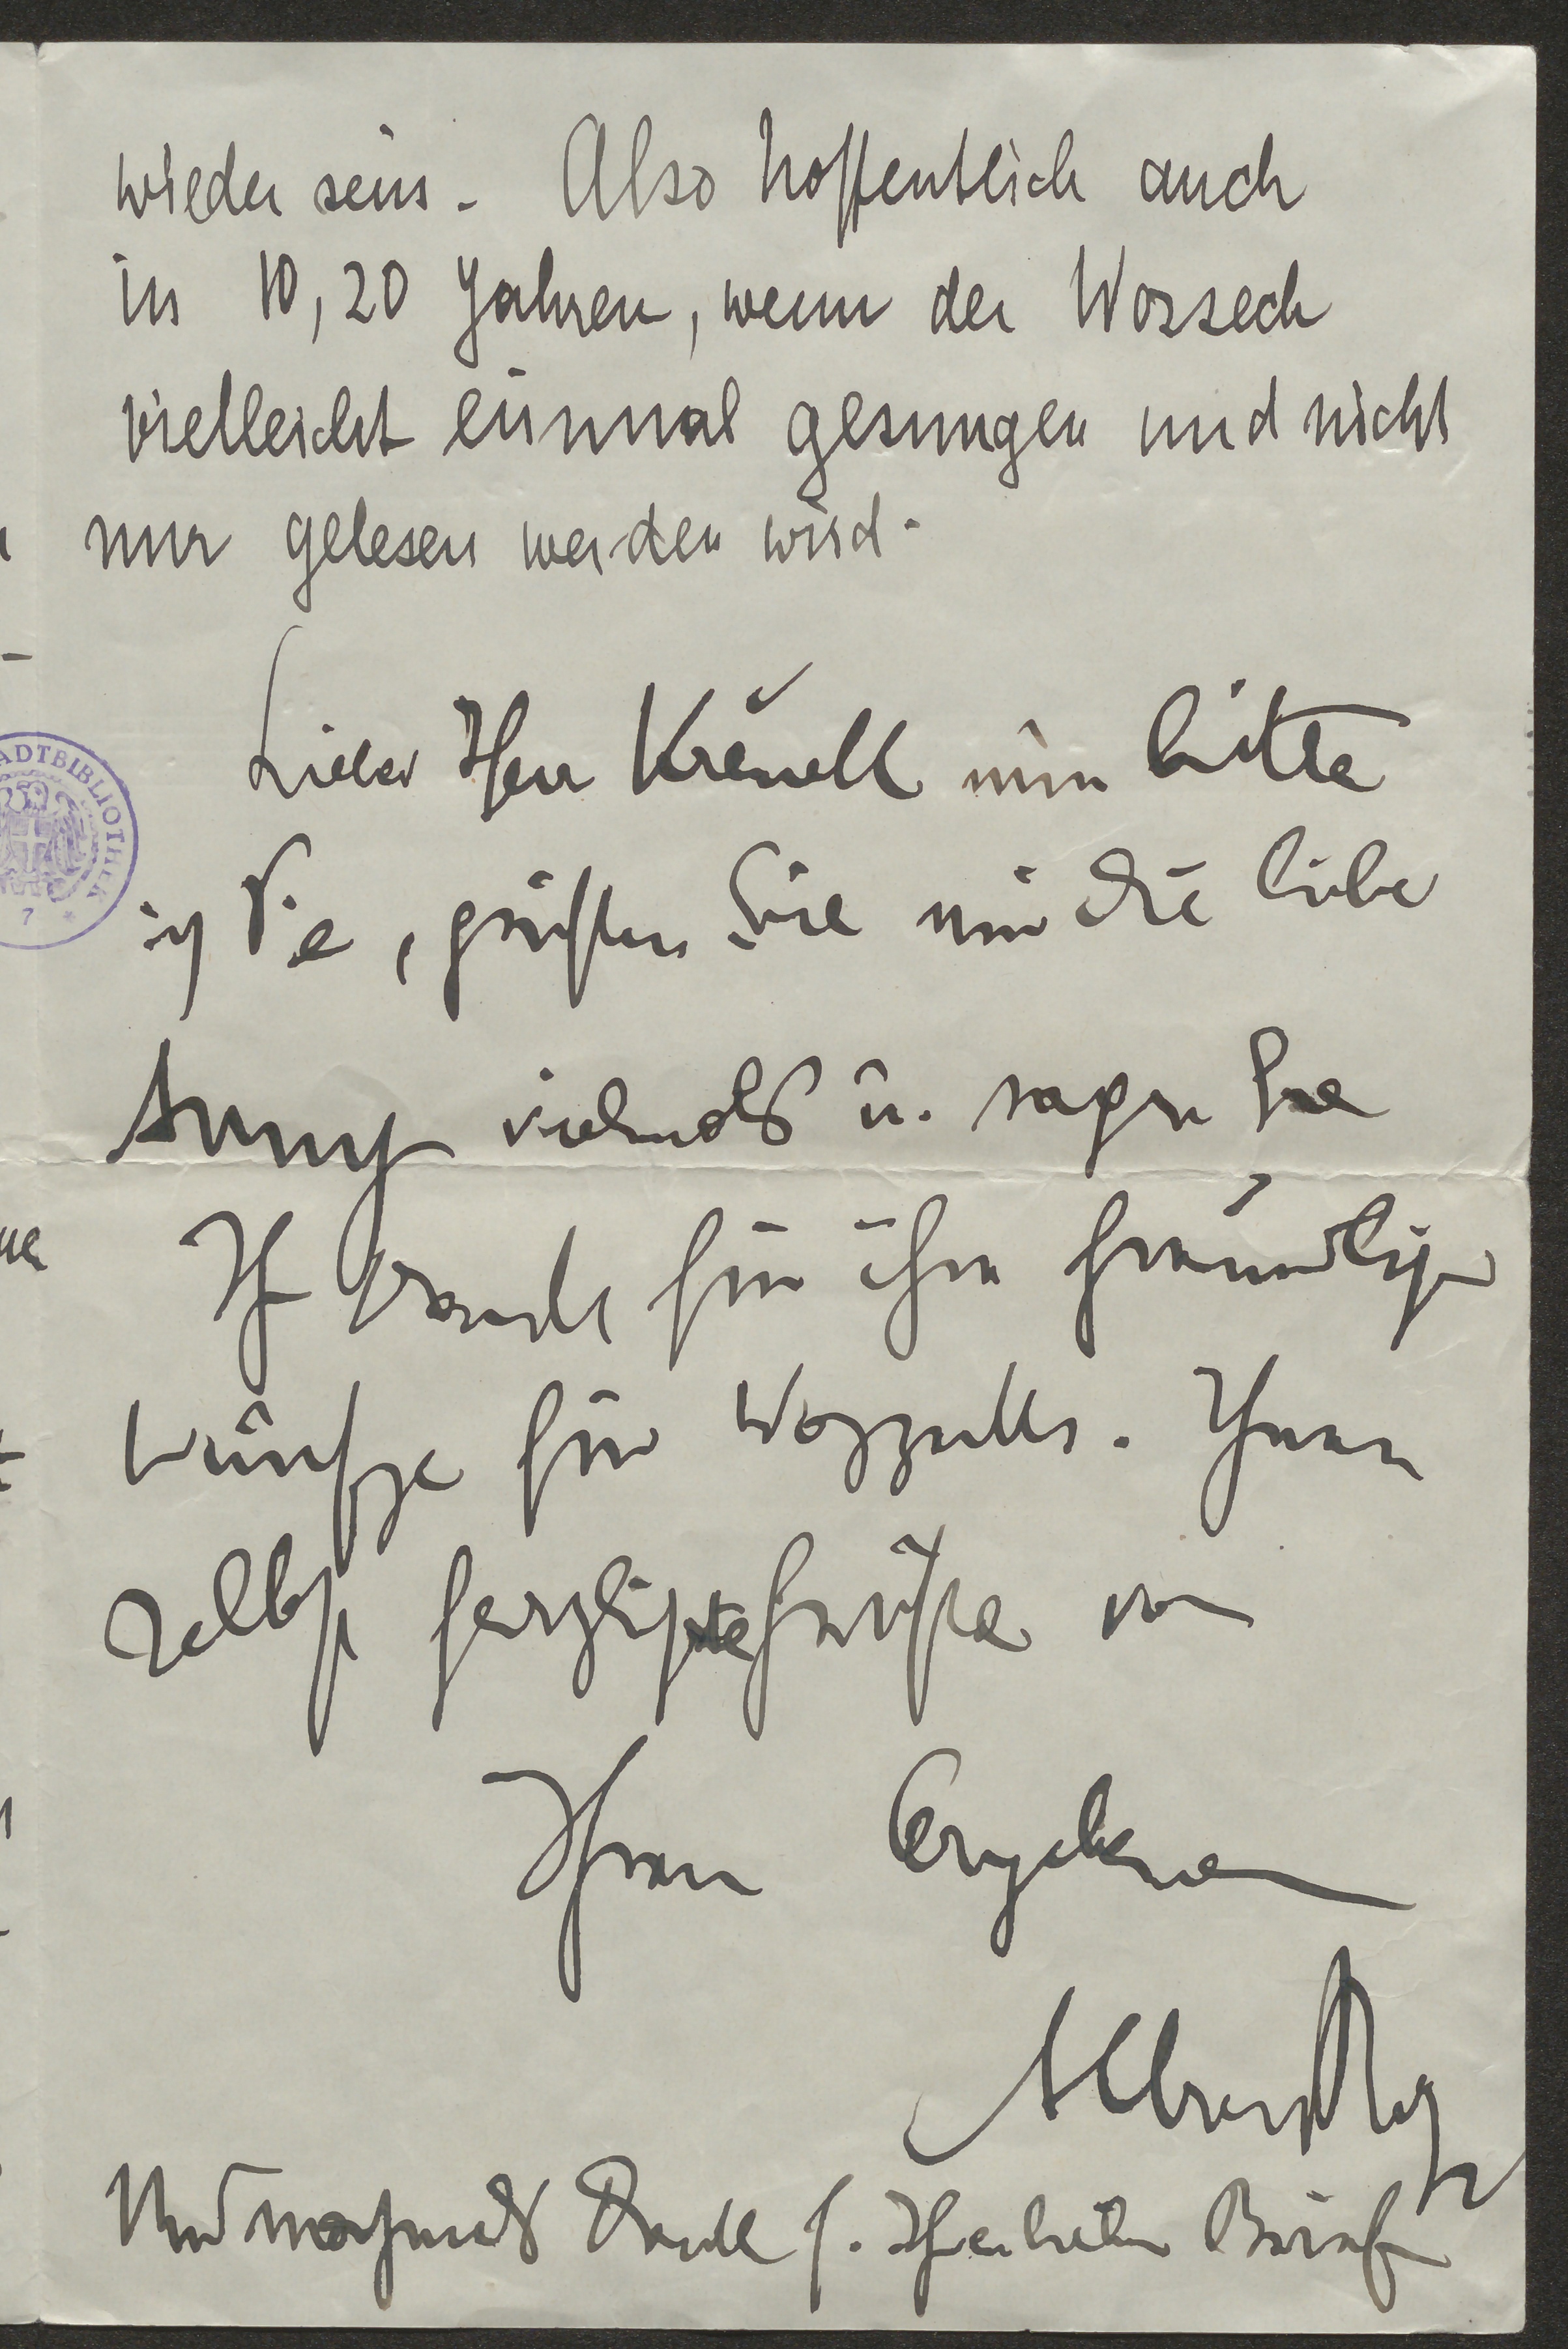 wieder sein. Also hoffentlich auch
in 10, 20 Jahren, wenn der Wozzeck
vielleicht einmal gesungen und nicht
nur gelesen werden wird.
Lieber Herr Křenek nun bitte
ich Sie, grüßen Sie mir die liebe
Anny vielmals u. sagen Sie
Ihr Dank für ihre freundlichen
Wünsche für Wozzeck. Ihnen
selbst herzlichste Grüße von
Ihrem ergebenen
Alban Berg
Und nochmals Dank f. Ihren lieben Brief
ADTBIBLIOTHEK
7 *